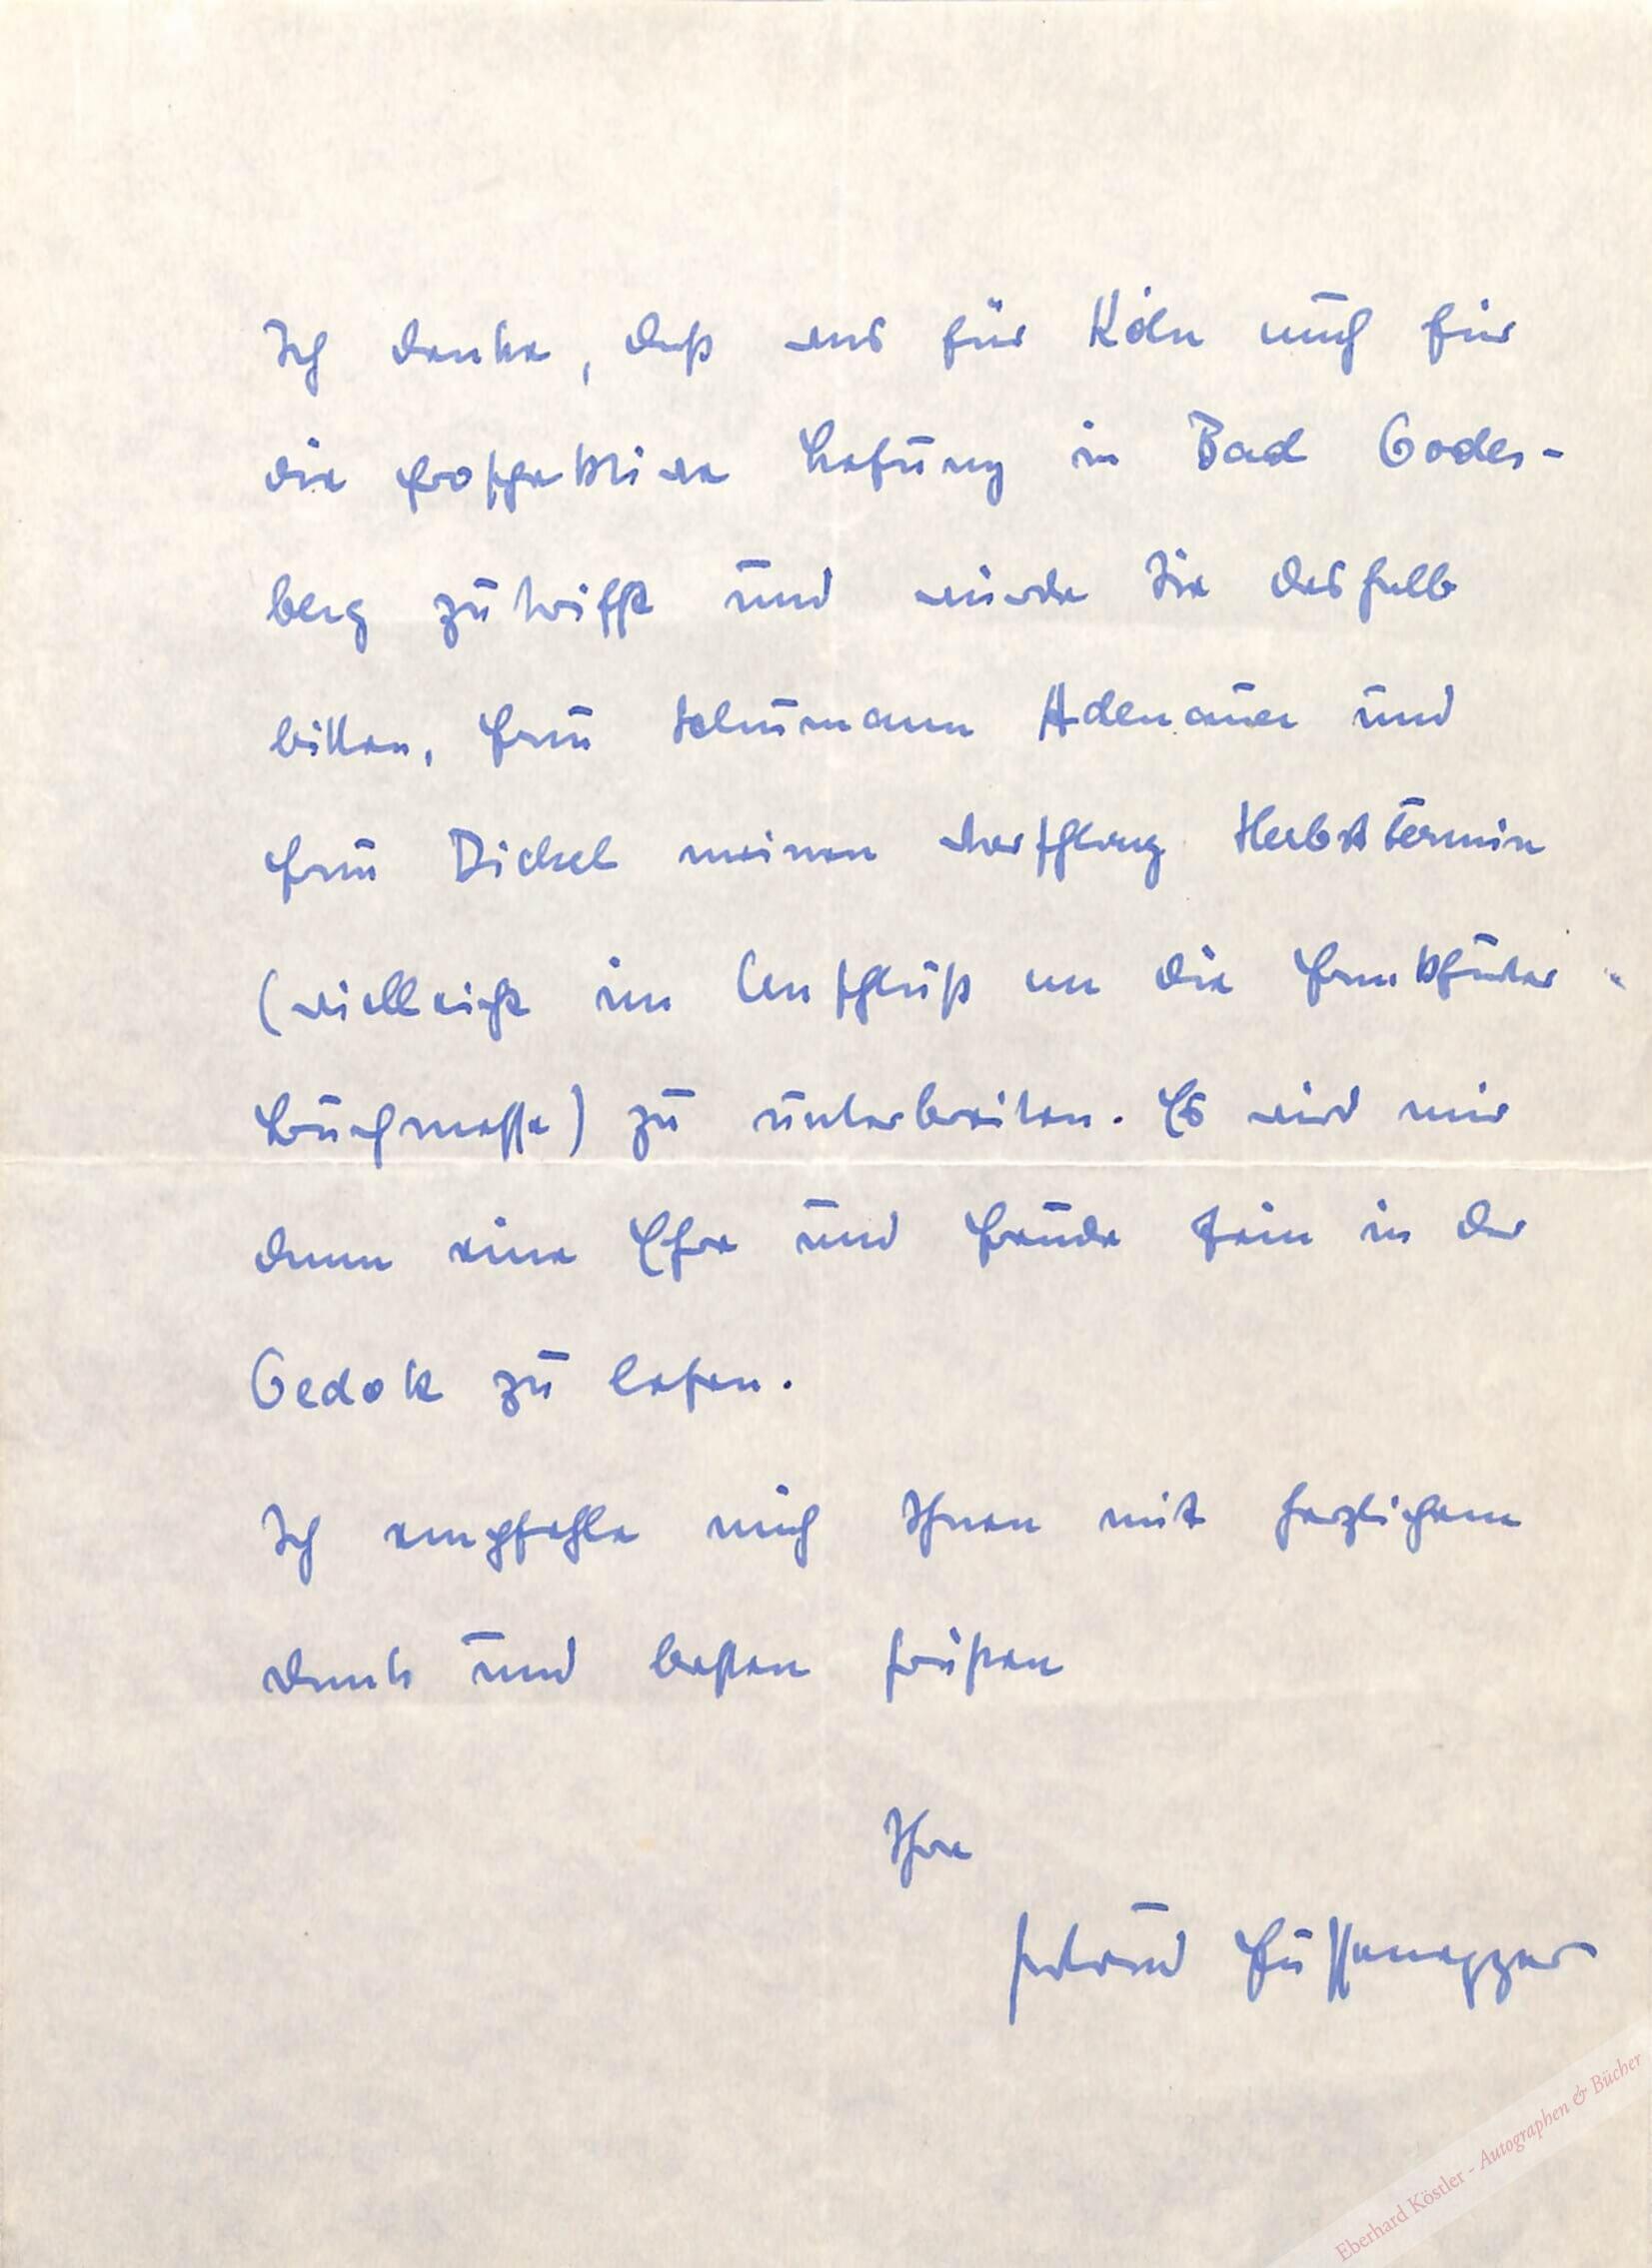 Ich denke, daß was für Köln auch für
die prospektive Lesung in Bad Godes-
berg zutrifft und würde Sie deshalb
bitten, Frau Schumann Adenauer und
Frau Dickel meinen Vorschlag Herbsttermin
(vielleicht im Anschluß an die Frankfurter
Buchmesse) zu unterbreiten. Es wird mir
dann eine Ehre und Freude sein in der
Gedok zu lesen.
Ich empfehle mich Ihnen mit herzlichem
Dank und besten Grüßen
Ihre
Gertrud Fussenegger
Eberhard Köstler - Autographen & Bücher